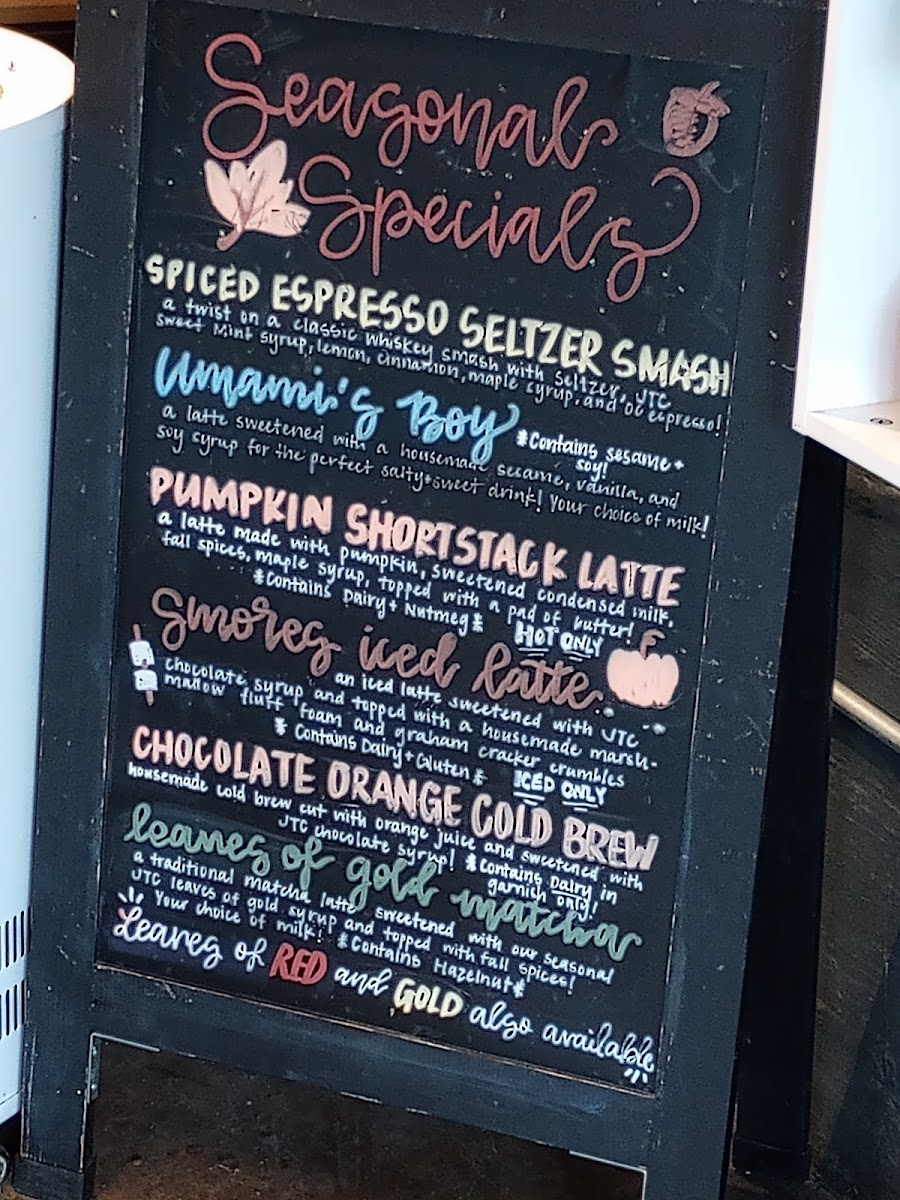 Seasonal
Specials
SPICED ESPRESSO SELTZER SMASH
a twist on a classic whiskey smash with Seltzer, JTC
sweet Mint syrup, lemon, cinnamon, maple syrup, and OC espresso!
Umami's Boy *Contains sesame +
soy!
a latte sweetened with a housemade sesame, vanilla, and
soy syrup for the perfect salty+sweet drink! Your choice of milk!
PUMPKIN SHORTSTACK LATTE
a latte made with pumpkin, sweetened condensed milk,
fall spices, maple syrup, topped with a pad of butter!
*Contains Dairy + Nutmeg* HOT ONLY
Smores iced latte
an iced latte sweetened with JTC
chocolate syrup and topped with a housemade marsh-
mallow fluff foam and graham cracker crumbles
* Contains Dairy + Gluten * ICED ONLY
CHOCOLATE ORANGE COLD BREW
housemade cold brew cut with orange juice and sweetened with
JTC chocolate syrup! *Contains Dairy in
garnish only!
leaves of gold matcha
a traditional matcha latte sweetened with our seasonal
JTC leaves of gold syrup and topped with fall spices!
Your choice of milk! *Contains Hazelnut*
Leaves of RED and GOLD also available